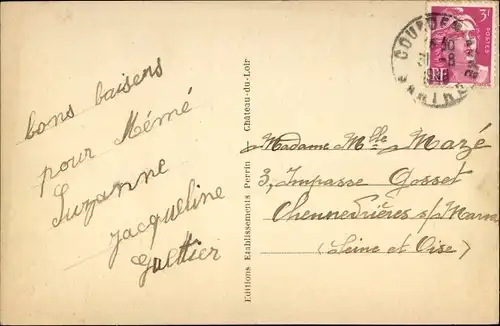 bons baisers
pour Mémé
Suzanne
Jacqueline
Gultier
Editions Etablissements Perrin Château-du-Loir
3F
POSTES
31 -8
Madame Mlle Mazé
3, Impasse Gosset
Chennevières s/ Marne
(Seine et Oise)